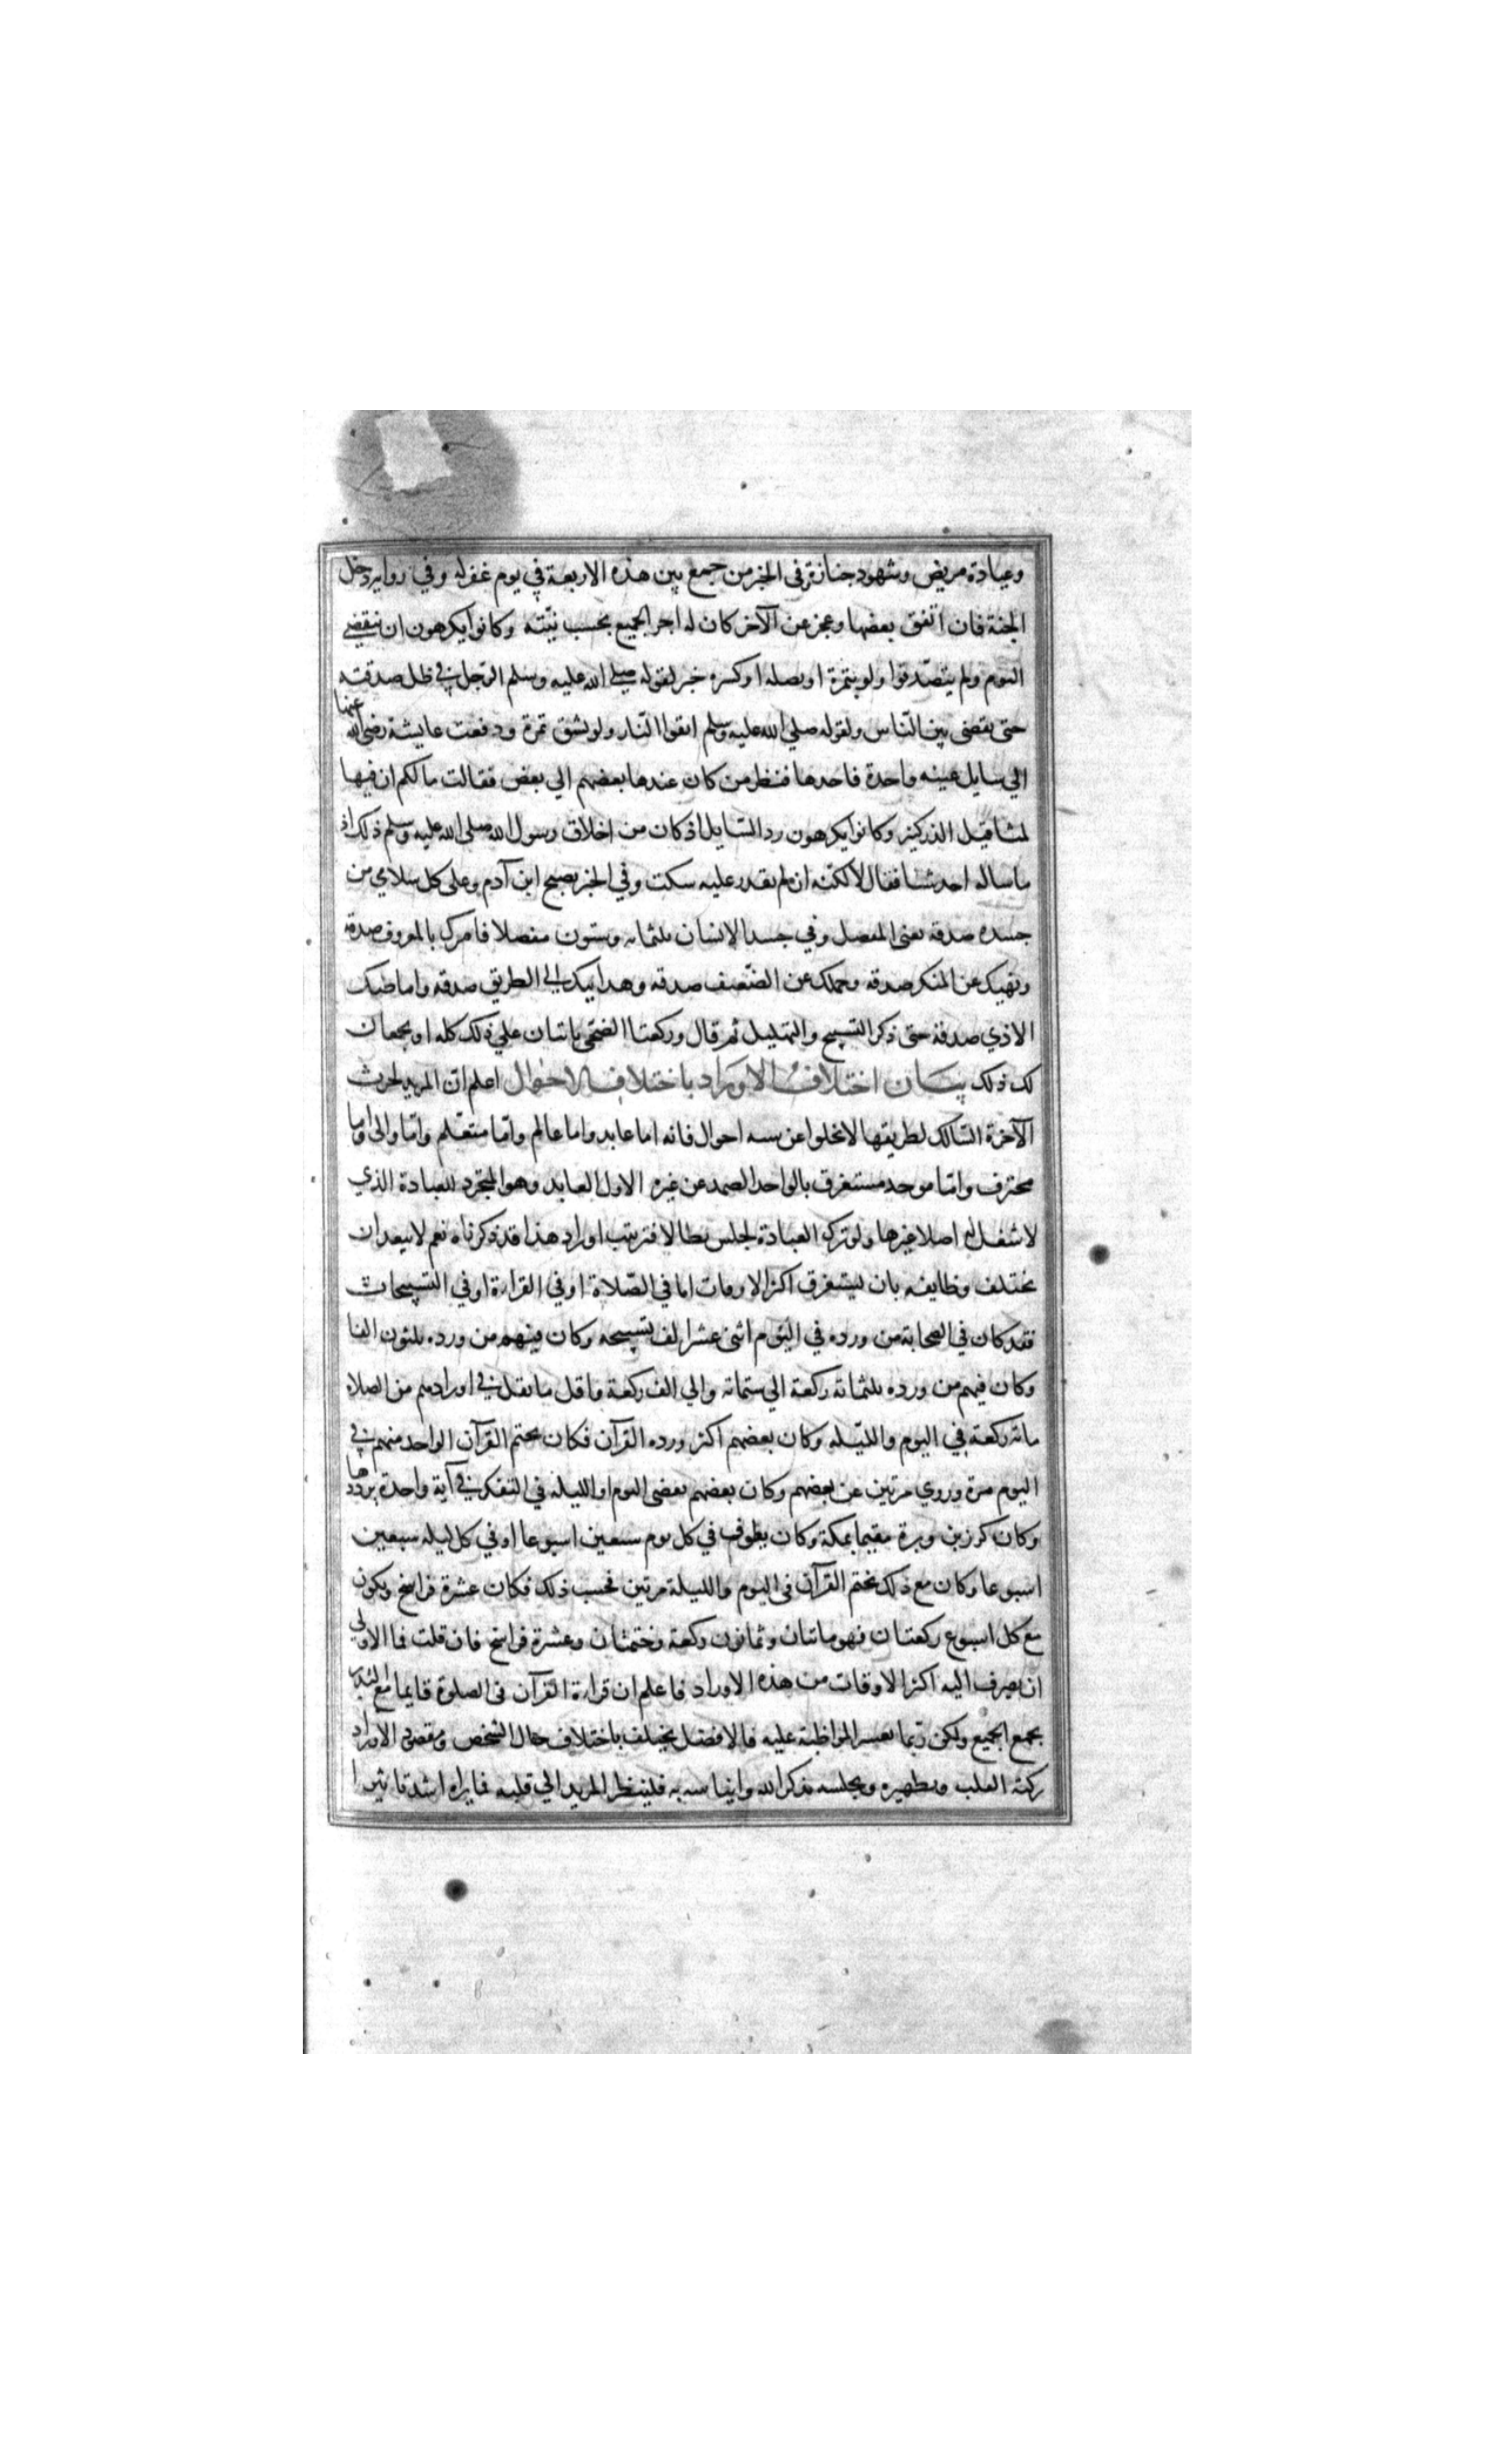 وعيادة مريض وشهود جنازة وفى الخبر من جمع بين هذه الاربعة في يوم غفر له وفي رواية دخل
الجنة فان اتفق بعضها وعجز عن الآخر كان له اجر الجميع بحسب نيّته وكانوا يكرهون ان ينقضي
اليوم ولم يتصدقوا ولو بتمرة او بصلة او كسرة خبز لقوله صلي الله عليه وسلم الرّجل في ظل صدقته
حتى يقضى بين النّاس ولقوله صلي الله عليه وسلم اتقوا النّار ولو بشق تمرة ودفعت عايشة رضي الله عنها
الي سايل عنبه واحدة فاخذها فنظر من كان عندها بعضهم الي بعض فقالت ما لكم ان فيها
لمثاقيل الذر كثير وكانوا يكرهون رد السّايل اذ كان من اخلاق رسول الله صلى الله عليه وسلم ذلك اذ
ما ساله احد شيا فقال لا لكنّه ان لم يقدر عليه سكت وفي الخبر يصبح ابن آدم وعلى كل سلامي من
جسده صدقه يعنى المفصل وفي جسد الانسان ثلثمائه وستون مفصلا فامرك بالمعروف صدقة
ونهيك عن المنكر صدقه وحملك عن الضّعيف صدقه وهدايتك الي الطريق صدقه واماطتك
الاذي صدقة حتى ذكر التسبيح والتهليل ثم قال وركعتا الضحى ياتيان علي ذلك كله او يجمعان
لك ذلك بيان اختلاف الاوراد باختلاف الاحوال اعلم ان المريد لحرث
الآخرة السّالك لطريقها لا يخلوا عن سته احوال فانه اما عابد واما عالم وامّا متعلم وامّا والى واما
محترف وامّا موحد مستغرق بالواحد الصمد عن غيره الاول العابد وهو المتجرد للعبادة الذي
لا شغل له اصلا غيرها ولو ترك العبادة لجلس بطالا فترتيب اوراد هذا قد ذكرناه نعم لا يبعد ان
يختلف وظايفه بان يستغرق اكثر الاوقات اما في الصّلاة او في القراءة او في التسبيحات
فقد كان في الصحابة من ورده في اليوم اثنى عشر الف تسبيحه وكان فيهم من ورده ثلثون الفا
وكان فيهم من ورده ثلثمائه ركعة الي ستمائه والي الف ركعة واقل ما نقل في اورادهم من الصلاة
مائة ركعة في اليوم والليّله وكان بعضهم اكثر ورده القرآن فكان يختم القرآن الواحد منهم في
اليوم مرة وروي مرتين عن بعضهم وكان بعضهم يقضى اليوم او الليلة في التفكر في آية واحدة يرددها
وكان كرز بن وبرة مقيما بمكة وكان يطوف في كل يوم سبعين اسبوعا او في كل ليله سبعين
اسبوعا وكان مع ذلك يختم القرآن فى اليوم والليلة مرتين فحسب ذلك فكان عشرة فراسخ ويكون
مع كل اسبوع ركعتان فهو مائتان وثمانون ركعة وختمتان وعشرة فراسخ فان قلت فما الاولي
ان يصرف اليه اكثر الاوقات من هذه الاوراد فاعلم ان قراءة القرآن فى الصلوة قايما مع التدبر
يجمع الجميع ولكن ربّما يعسر المواظبة عليه فالافضل يختلف باختلاف حال الشخص ومقصود الاوراد
زكية القلب وتطهيره وتحليته بذكر الله وايناسه به فلينظر المريد الي قلبه فما يراه اشد تاثيرا